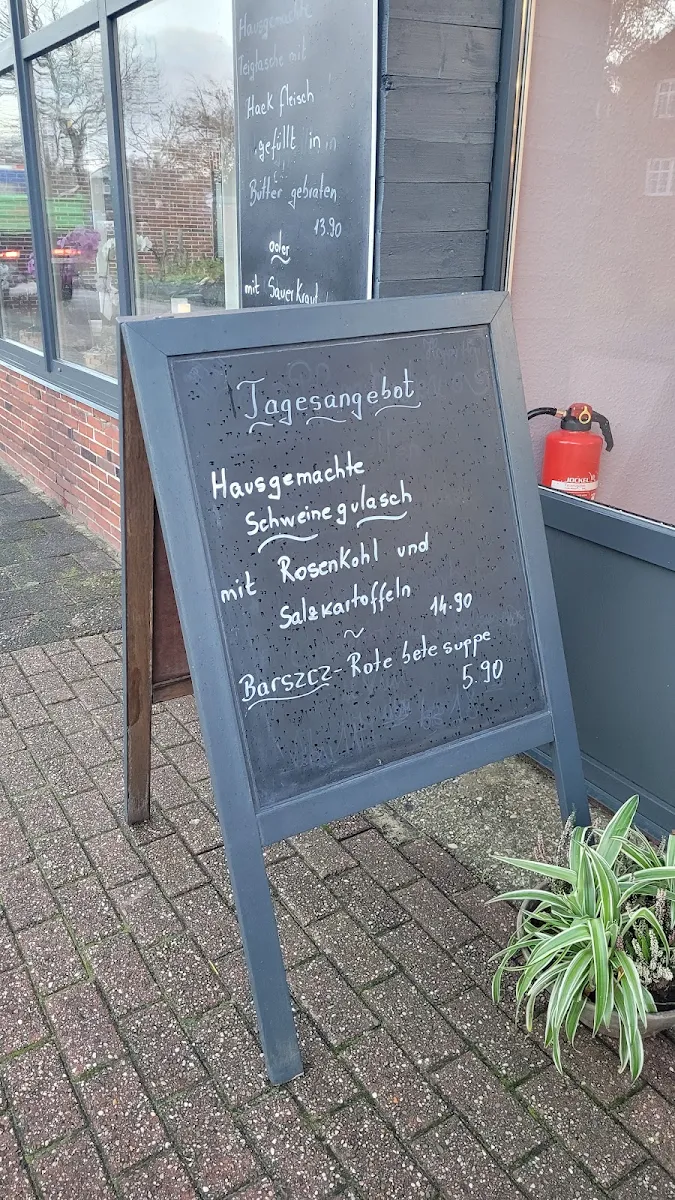 Hausgemachte
Teigtasche mit
Hackfleisch
gefüllt in
Butter gebraten
13.90
oder
mit Sauerkraut
Tagesangebot
Hausgemachte
Schweinegulasch
mit Rosenkohl und
Salzkartoffeln 14.90
~
Barszcz - Rote bete suppe
5.90
JOCKEL